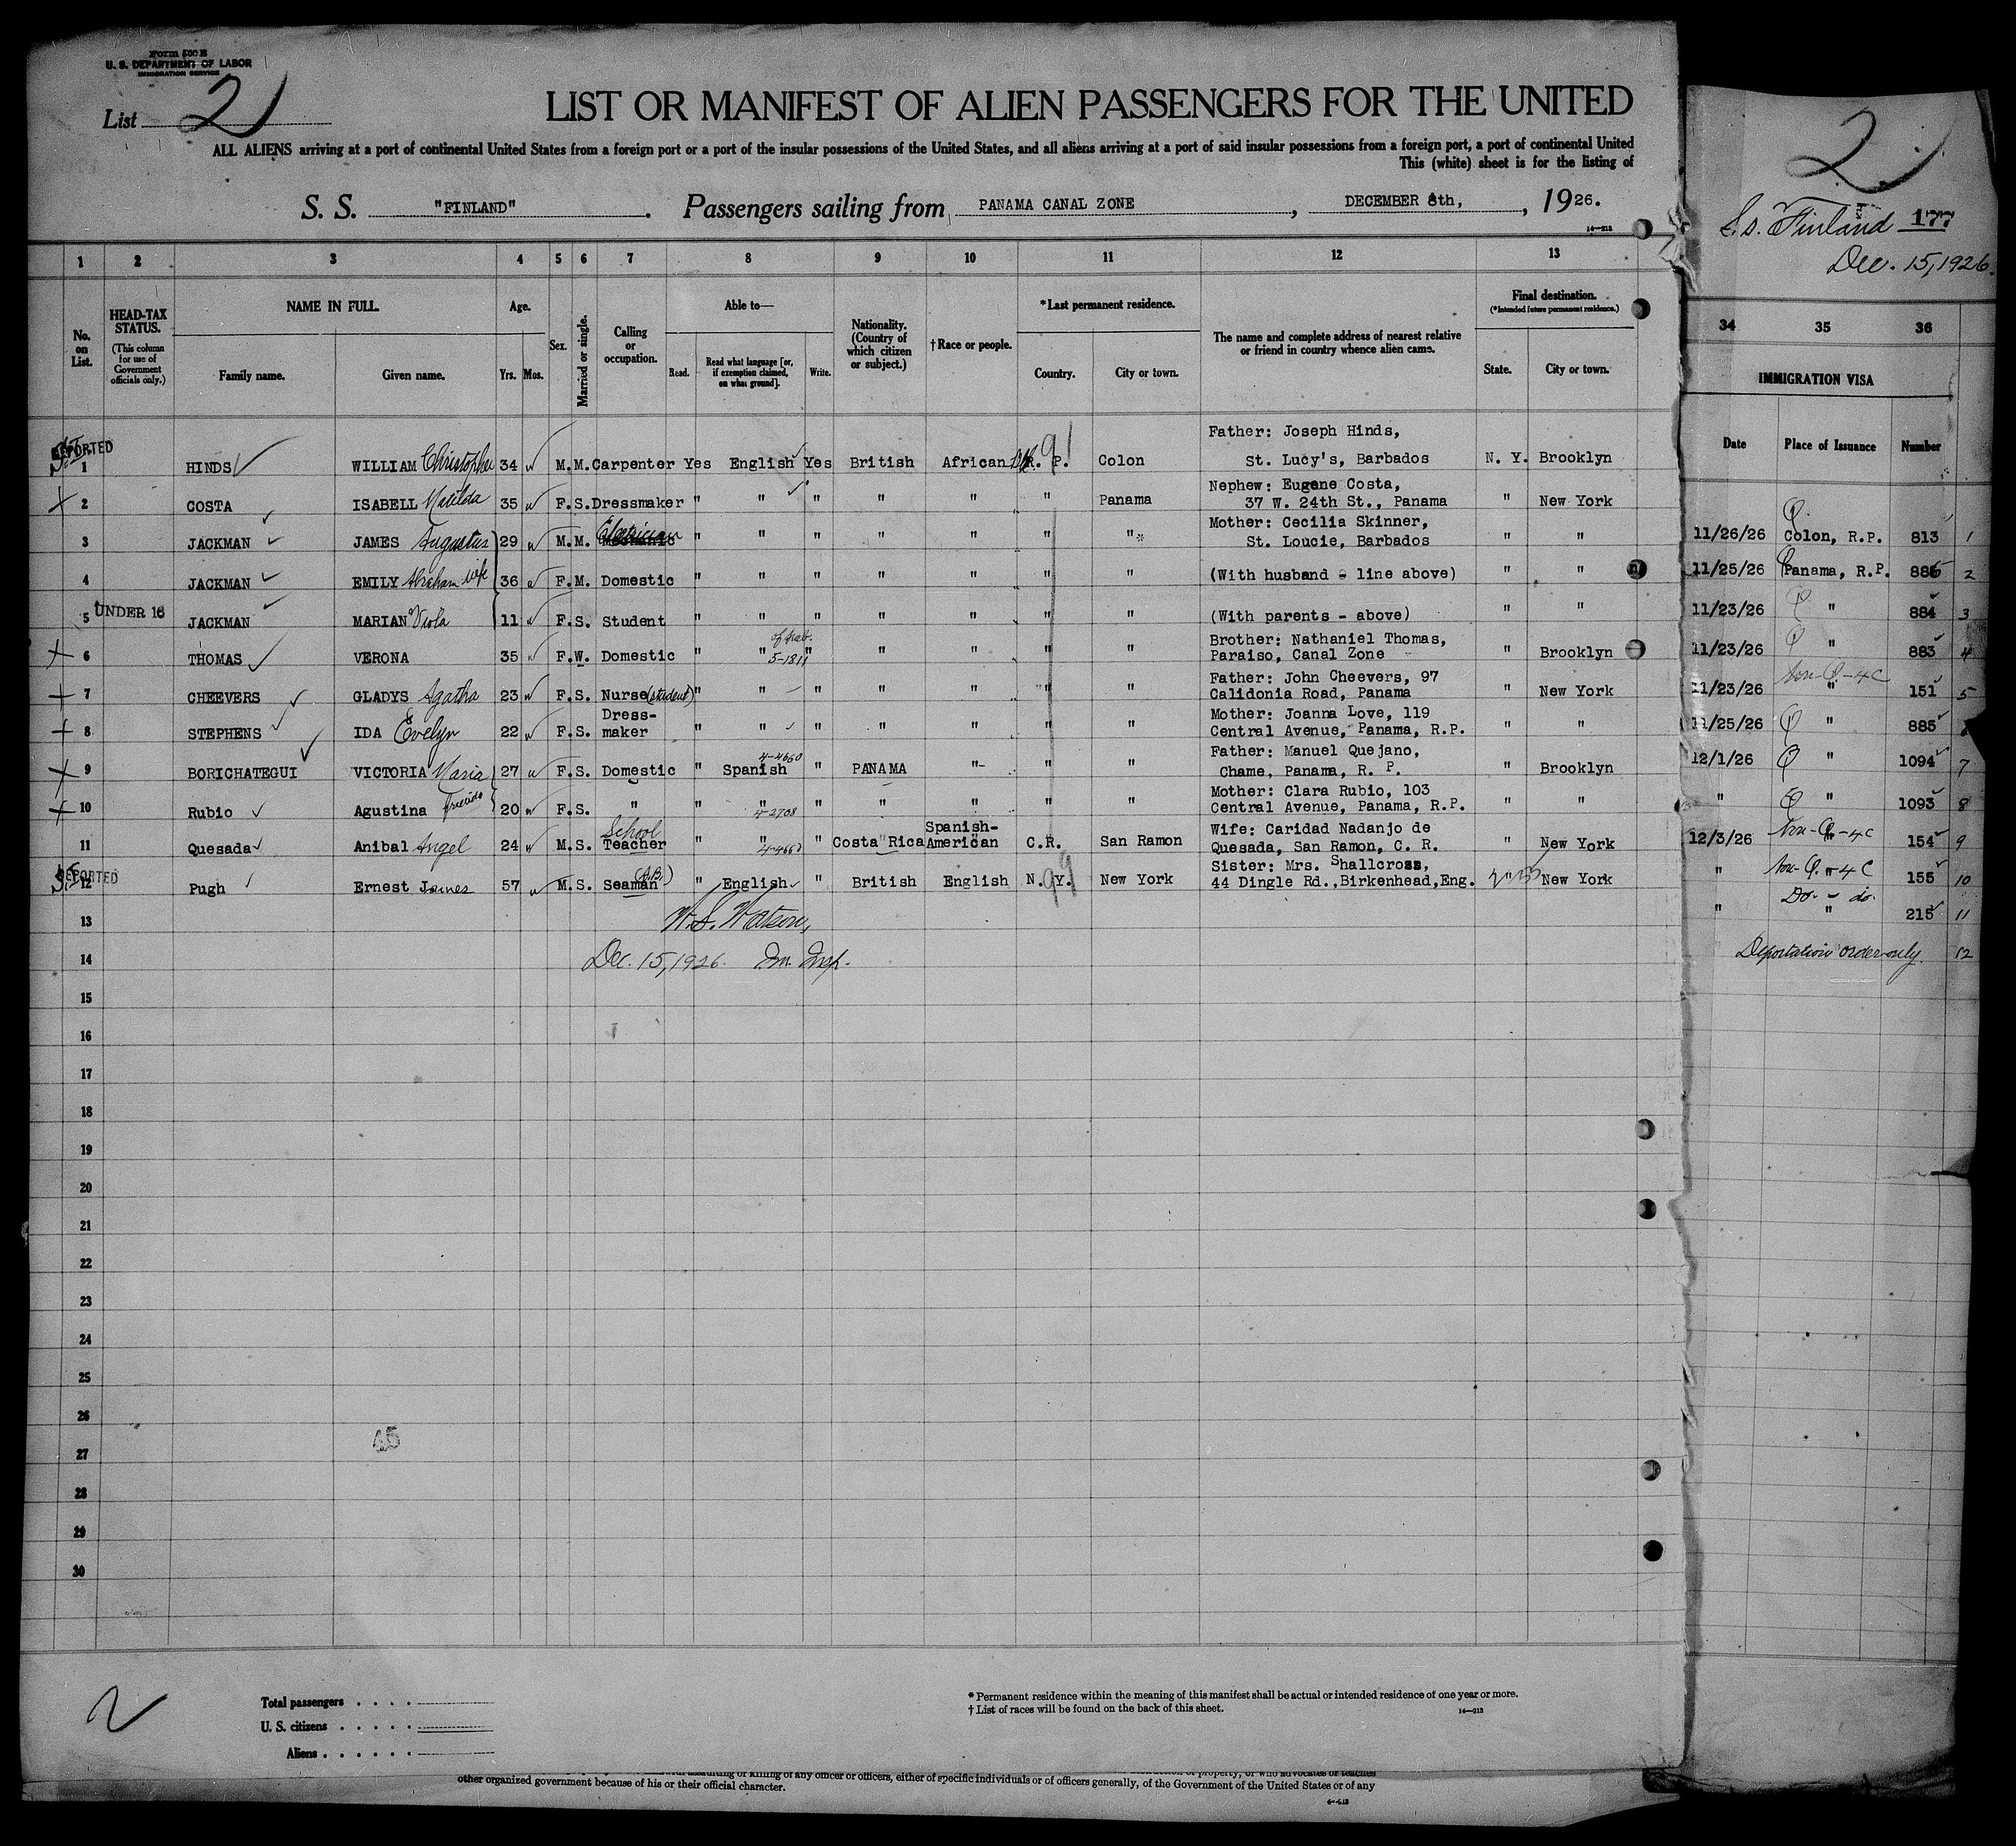 Form 500 B
U. S. DEPARTMENT OF LABOR
IMMIGRATION SERVICE
List 2
LIST OR MANIFEST OF ALIEN PASSENGERS FOR THE UNITED
ALL ALIENS arriving at a port of continental United States from a foreign port or a port of the insular possessions of the United States, and all aliens arriving at a port of said insular possessions from a foreign port, a port of continental United
This (white) sheet is for the listing of
S. S. "FINLAND". Passengers sailing from PANAMA CANAL ZONE, DECEMBER 8th, 1926.
14—213
2
S.S. Finland 177
Dec. 15, 1926.
1 2 3 4 5 6 7 8 9 10 11 12 13
34 35 36
No. on List.
HEAD-TAX STATUS.
(This column for use of Government officials only.)
NAME IN FULL.
Family name. Given name.
Age.
Yrs. Mos.
Sex.
Married or single.
Calling or occupation.
Able to—
Read. Read what language [or, if exemption claimed, on what ground]. Write.
Nationality. (Country of which citizen or subject.)
† Race or people.
*Last permanent residence.
Country. City or town.
The name and complete address of nearest relative or friend in country whence alien came.
Final destination.
(*Intended future permanent residence.)
State. City or town.
IMMIGRATION VISA
Date Place of Issuance Number
DEPORTED
Father: Joseph Hinds,
1 HINDS WILLIAM Christopher 34 M. M. Carpenter Yes English Yes British African R. P. Colon St. Lucy's, Barbados N. Y. Brooklyn
Nephew: Eugene Costa,
2 COSTA ISABELL Matilda 35 F. S. Dressmaker " " " " " " Panama 37 W. 24th St., Panama " New York
Mother: Cecilia Skinner,
3 JACKMAN JAMES Augustus 29 M. M. Electrician " " " " " " "* St. Loucie, Barbados " "
4 JACKMAN EMILY Abraham wife 36 F. M. Domestic " " " " " " " (With husband - line above) " "
UNDER 16
5 JACKMAN MARIAN Viola 11 F. S. Student " " " " " " " (With parents - above) " "
Brother: Nathaniel Thomas,
6 THOMAS VERONA 35 F. W. Domestic " " 5-1811 " " " " " Paraiso, Canal Zone " Brooklyn
Father: John Cheevers, 97
7 CHEEVERS GLADYS Agatha 23 F. S. Nurse (student) " " " " " " " Calidonia Road, Panama " New York
Dress- Mother: Joanna Love, 119
8 STEPHENS IDA Evelyn 22 F. S. maker " " " " " " " Central Avenue, Panama, R.P. " "
4-4660 Father: Manuel Quejano,
9 BORICHATEGUI VICTORIA Maria 27 F. S. Domestic " Spanish " PANAMA " " " Chame, Panama, R. P. " Brooklyn
Mother: Clara Rubio, 103
10 Rubio Agustina friends 20 F. S. " " " 4-2708 " " " " " Central Avenue, Panama, R.P. " "
School Spanish- Wife: Caridad Nadanjo de
11 Quesada Anibal Angel 24 M. S. Teacher " " " Costa Rica American C.R. San Ramon Quesada, San Ramon, C. R. " New York
DEPORTED
Sister: Mrs. Shallcross,
12 Pugh Ernest James 57 M. S. Seaman (A.B.) " English " British English N. Y. New York 44 Dingle Rd., Birkenhead, Eng. " New York
11/26/26 Colon, R.P. 813 1
11/25/26 Panama, R.P. 886 2
11/23/26 " 884 3
11/23/26 " 883 4
11/23/26 Non-Q-4C " 151 5
11/25/26 " 885
12/1/26 " 1094 7
" " 1093 8
12/3/26 Non-Q-4C 154 9
" Non-Q-4C " 155 10
" Do - do. " 215 11
Deportation order only 12
13
W.S. Watson,
14
Dec. 15, 1926. Im. Insp.
15
16
17
18
19
20
21
22
23
24
25
26
27
28
29
30
2
Total passengers . . . .
U. S. citizens . . . . .
Aliens . . . . . .
* Permanent residence within the meaning of this manifest shall be actual or intended residence of one year or more.
† List of races will be found on the back of this sheet.
14—213
other organized government because of his or their official character.
killing of any officer or officers, either of specific individuals or of officers generally, of the Government of the United States or of any